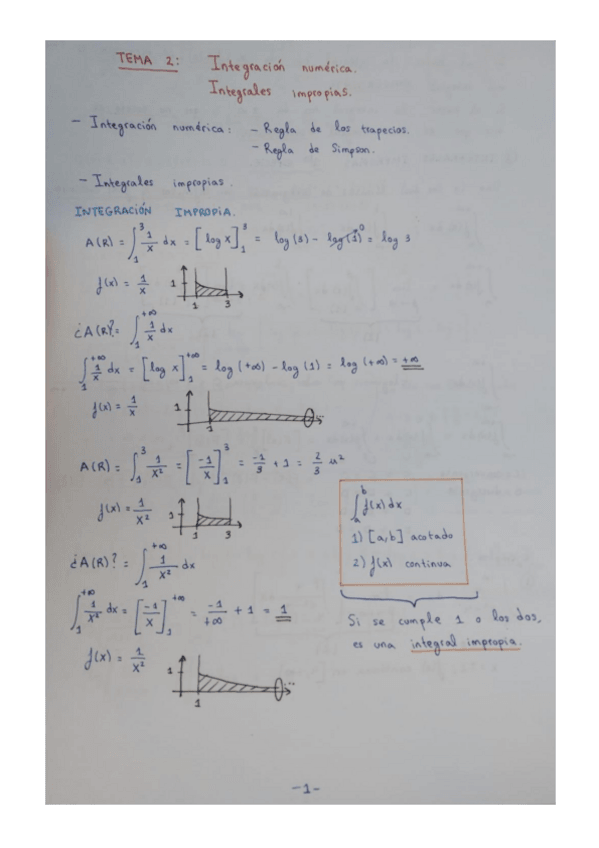 TEMA 2: Integración numérica.
Integrales impropias.
- Integración numérica: - Regla de los trapecios.
- Regla de Simpson.
- Integrales impropias
INTEGRACIÓN IMPROPIA.
A(R) = ∫₁³ 1/x dx = [log x]₁³ = log(3) - log(1)⁰ = log 3
f(x) = 1/x
1
1 3
¿A(R)?= ∫₁^{+∞} 1/x dx
∫₁^{+∞} 1/x dx = [log x]₁^{+∞} = log(+∞) - log(1) = log(+∞) = +∞
f(x) = 1/x
1
1
A(R) = ∫₁³ 1/x² = [-1/x]₁³ = -1/3 + 1 = 2/3 u²
f(x) = 1/x²
1
1 3
¿A(R)? = ∫₁^{+∞} 1/x² dx
∫₁^{+∞} 1/x² dx = [-1/x]₁^{+∞} = -1/+∞ + 1 = 1
f(x) = 1/x²
1
1
∫ₐᵇ f(x) dx
1) [a,b] acotado
2) f(x) continua
Si se cumple 1 o los dos,
es una integral impropia.
-1-